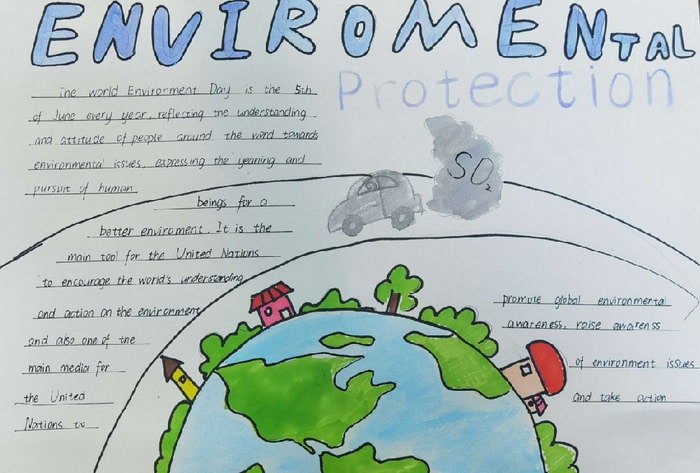 ENVIROMENTAL
Protection
The world Enviroment Day is the 5th
of June every year, reflecting the understanding
and attitude of people around the word towards
environmental issues, expressing the yearning and
pursuit of human
beings for a
better enviroment. It is the
main tool for the United Nations
to encourage the world's understanding
and action on the environment
and also one of the
main media for
the United
Nations to
SO₂
promote global environmental
awareness, raise awarenss
of environment issues
and take action